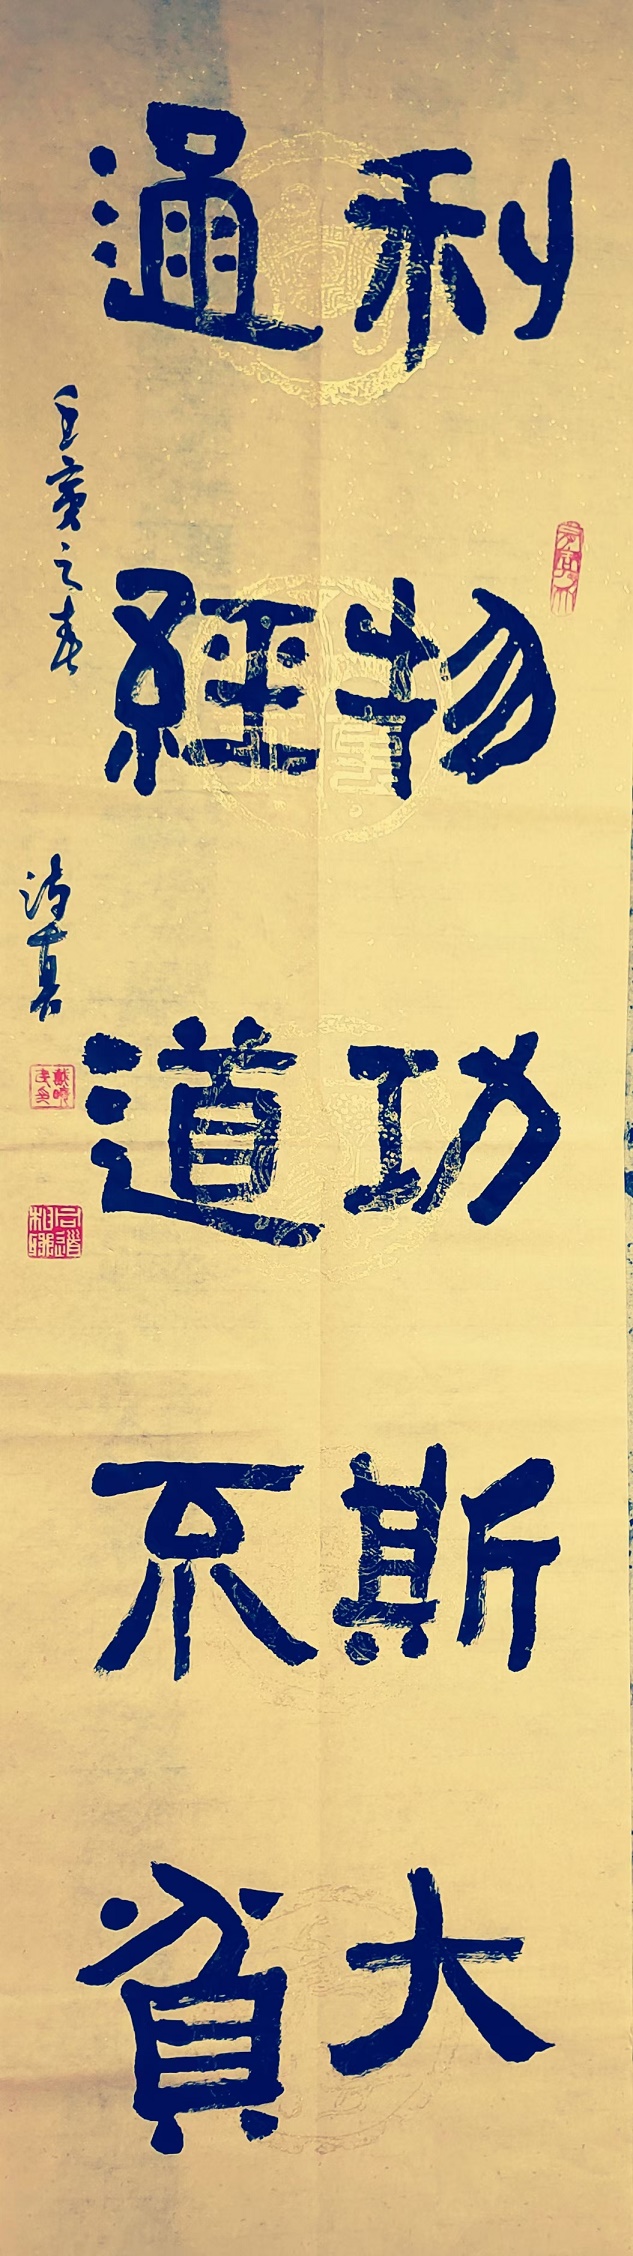 利物功斯大
通經道不貧
壬寅之春
詩真